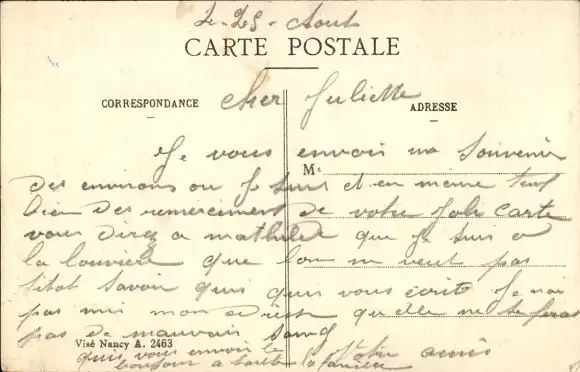 Le 25 - Aout
CARTE POSTALE
CORRESPONDANCE
ADRESSE
Cher Juliette
Je vous envoi un Souvenir
M
des environs ou Je suis et en meme temp
bien des remerciment de votre Jolie Carte
vous direz a mathilde que Je suis a
la louviere que lon ne veut pas
sitot savoir quis quis vous ecrit Je nai
pas mis mon adresse quelle ne se feras
pas de mauvais sang
Visé Nancy A. 2463
quis vous envoir le votre amis
bonjour a toute la